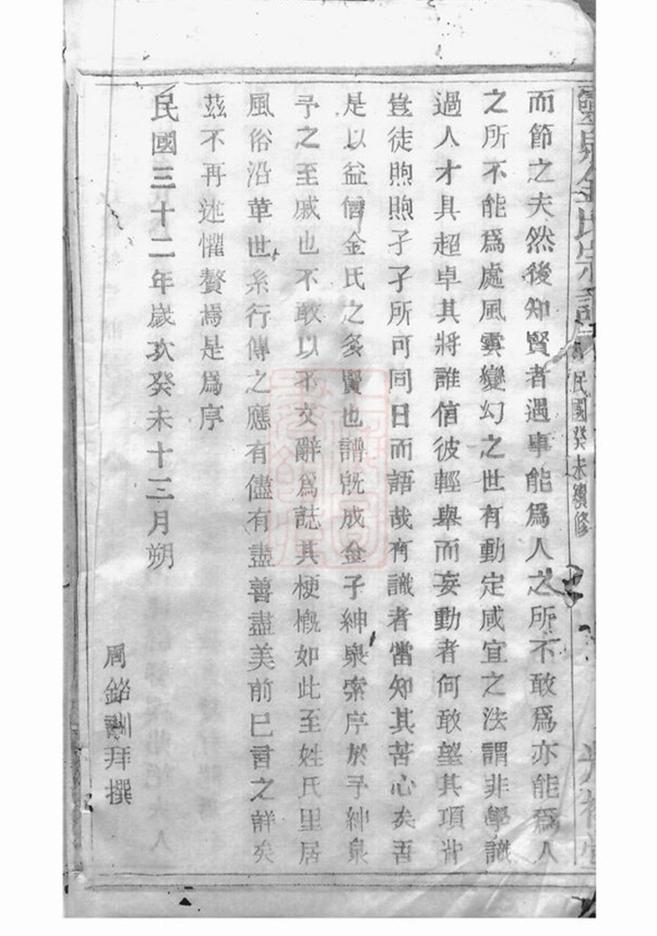 靈泉金氏宗譜 民國癸未續修
而節之夫然後知賢者遇事能爲人之所不敢爲亦能爲人
之所不能爲處風雲變幻之世有動定咸宜之法謂非學識
過人才具超卓其將誰信彼輕舉而妄動者何敢望其項背
豈徒煦煦孑孑所可同日而語哉有識者當知其苦心矣吾
是以益信金氏之多賢也譜既成金子紳泉索序於予紳泉
予之至戚也不敢以不文辭爲誌其梗概如此至姓氏里居
風俗沿革世系行傳之應有儘有盡善盡美前已言之詳矣
茲不再述懼贅焉是爲序
民國三十二年歲次癸未十二月朔
周銘訓拜撰